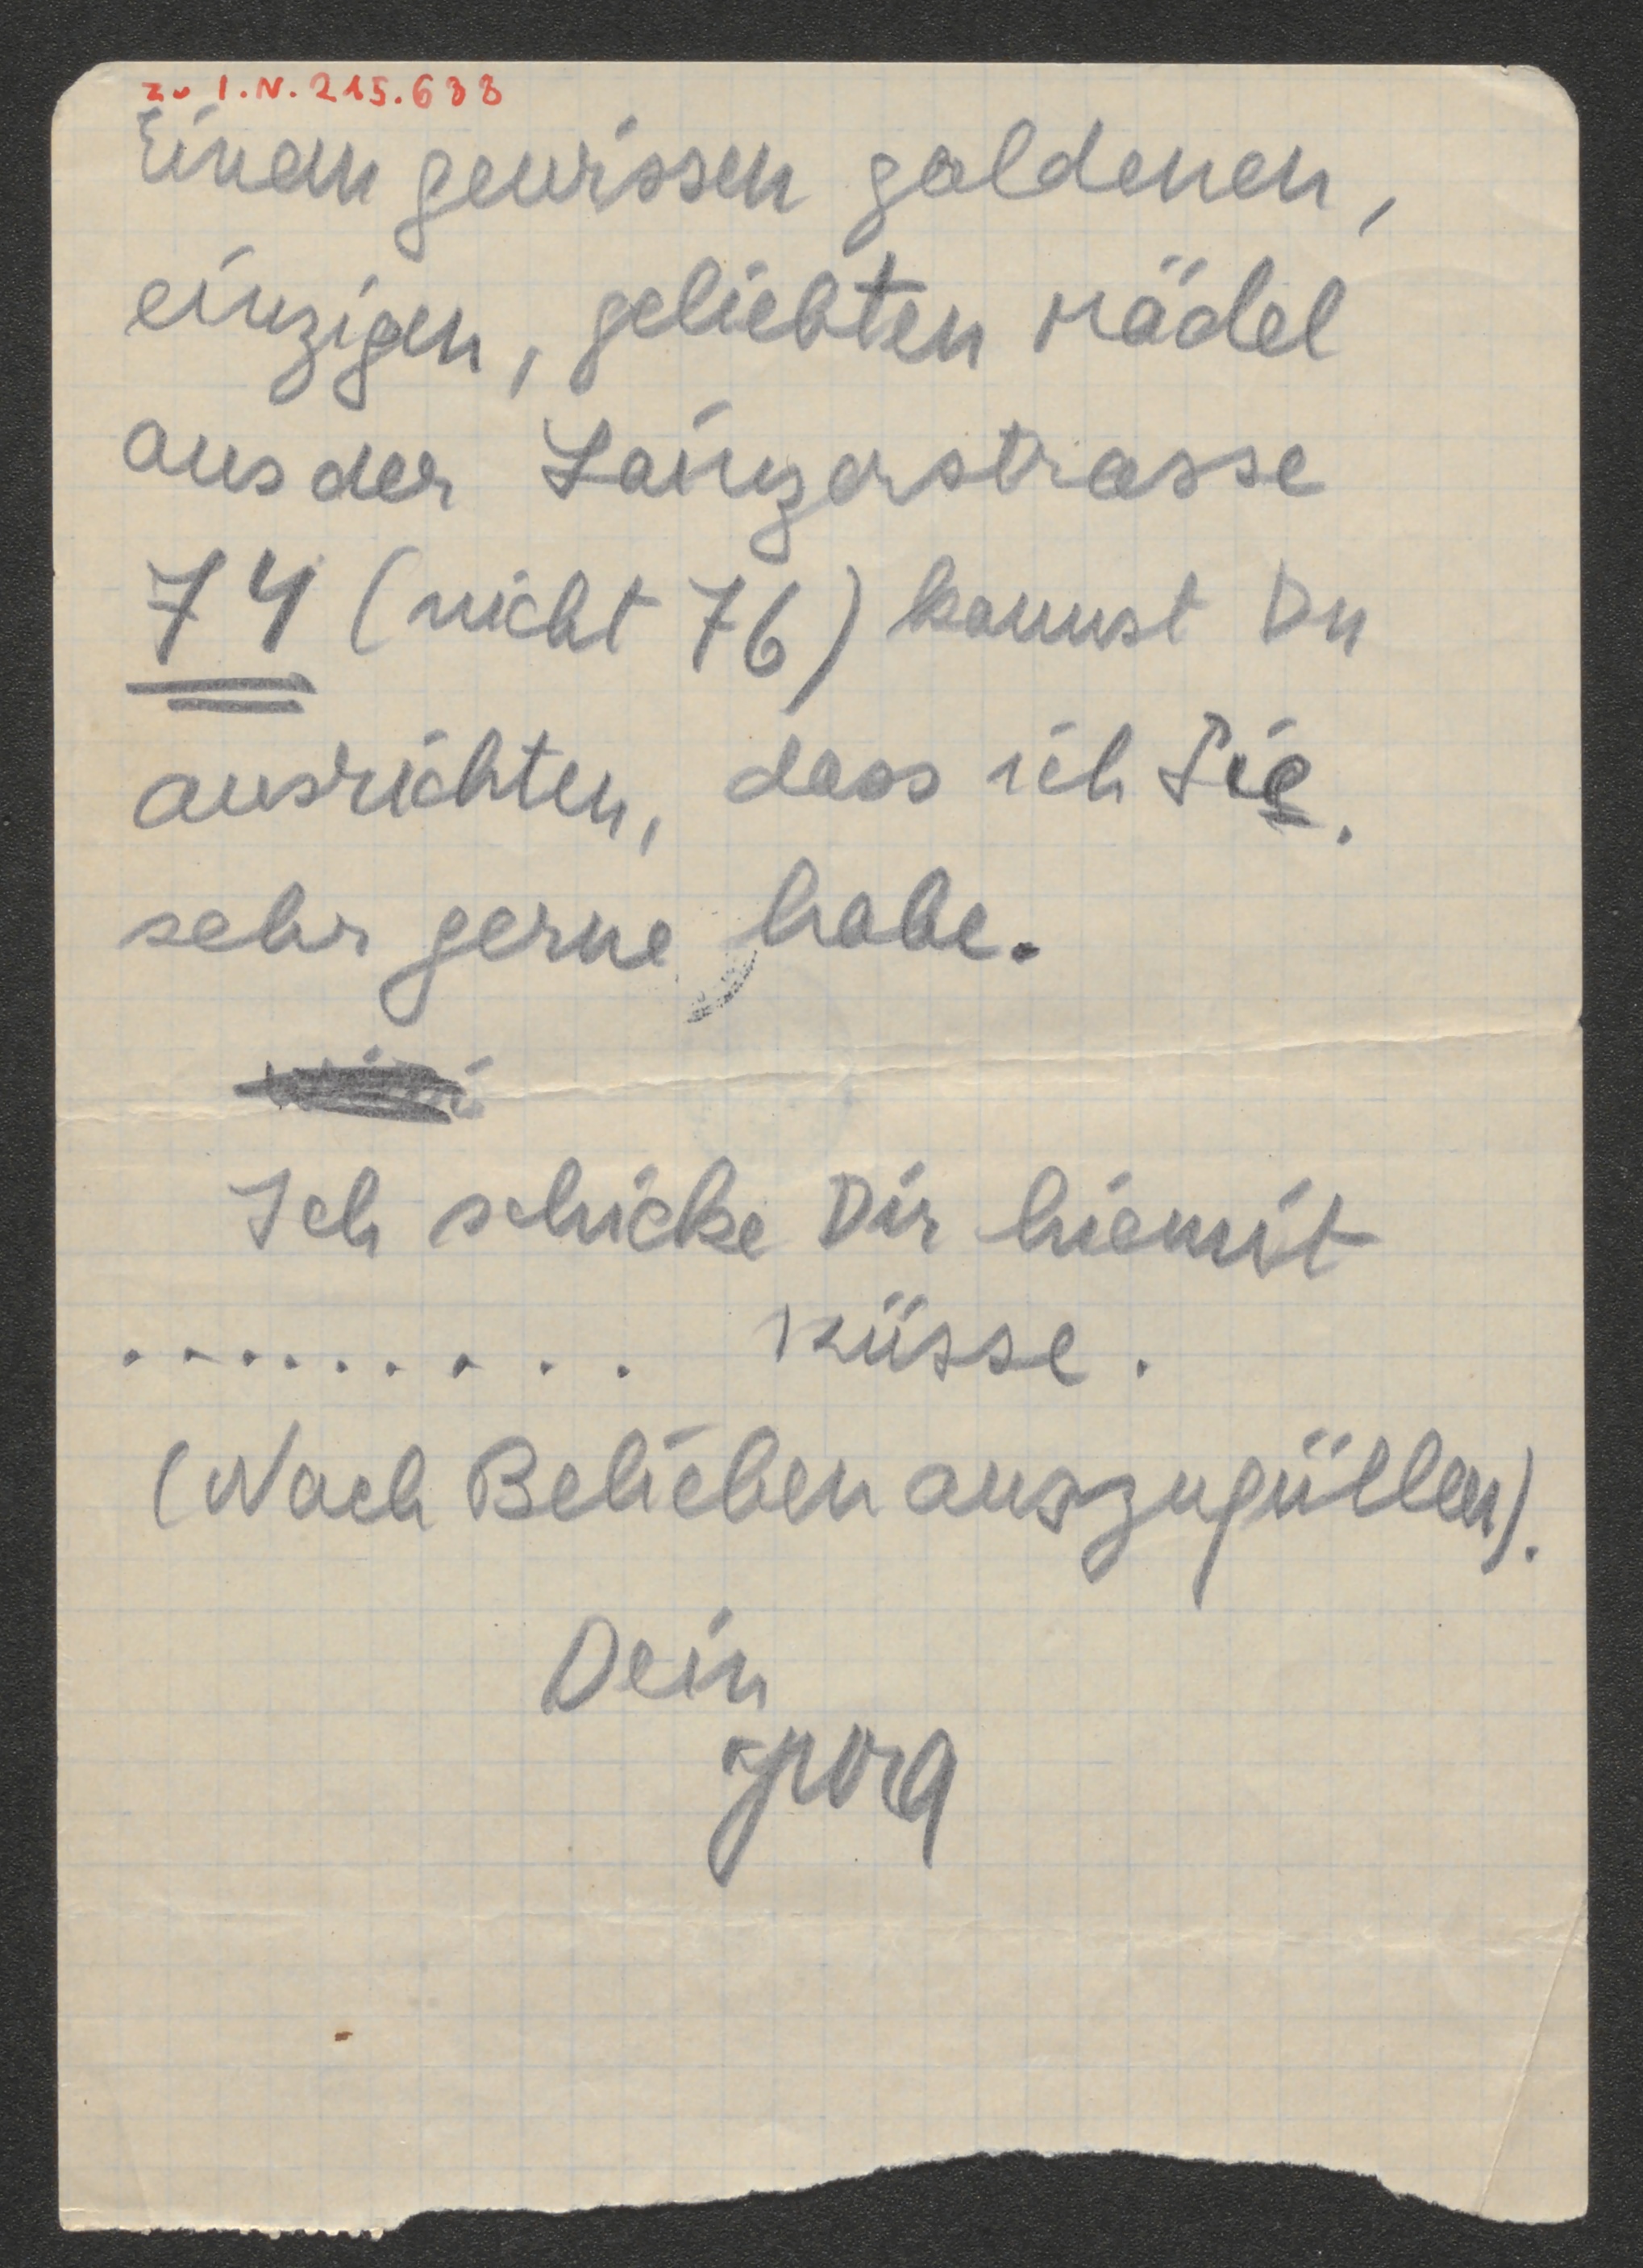 zu I.N. 215.633
Einem gewissen goldenen,
einzigen, geliebten Mädel
aus der Lainzerstrasse
74 (nicht 76) kannst Du
ausrichten, dass ich Sie
sehr gerne habe.
Ich schicke Dir hiemit
......... Küsse.
(Nach Belieben auszufüllen).
Dein